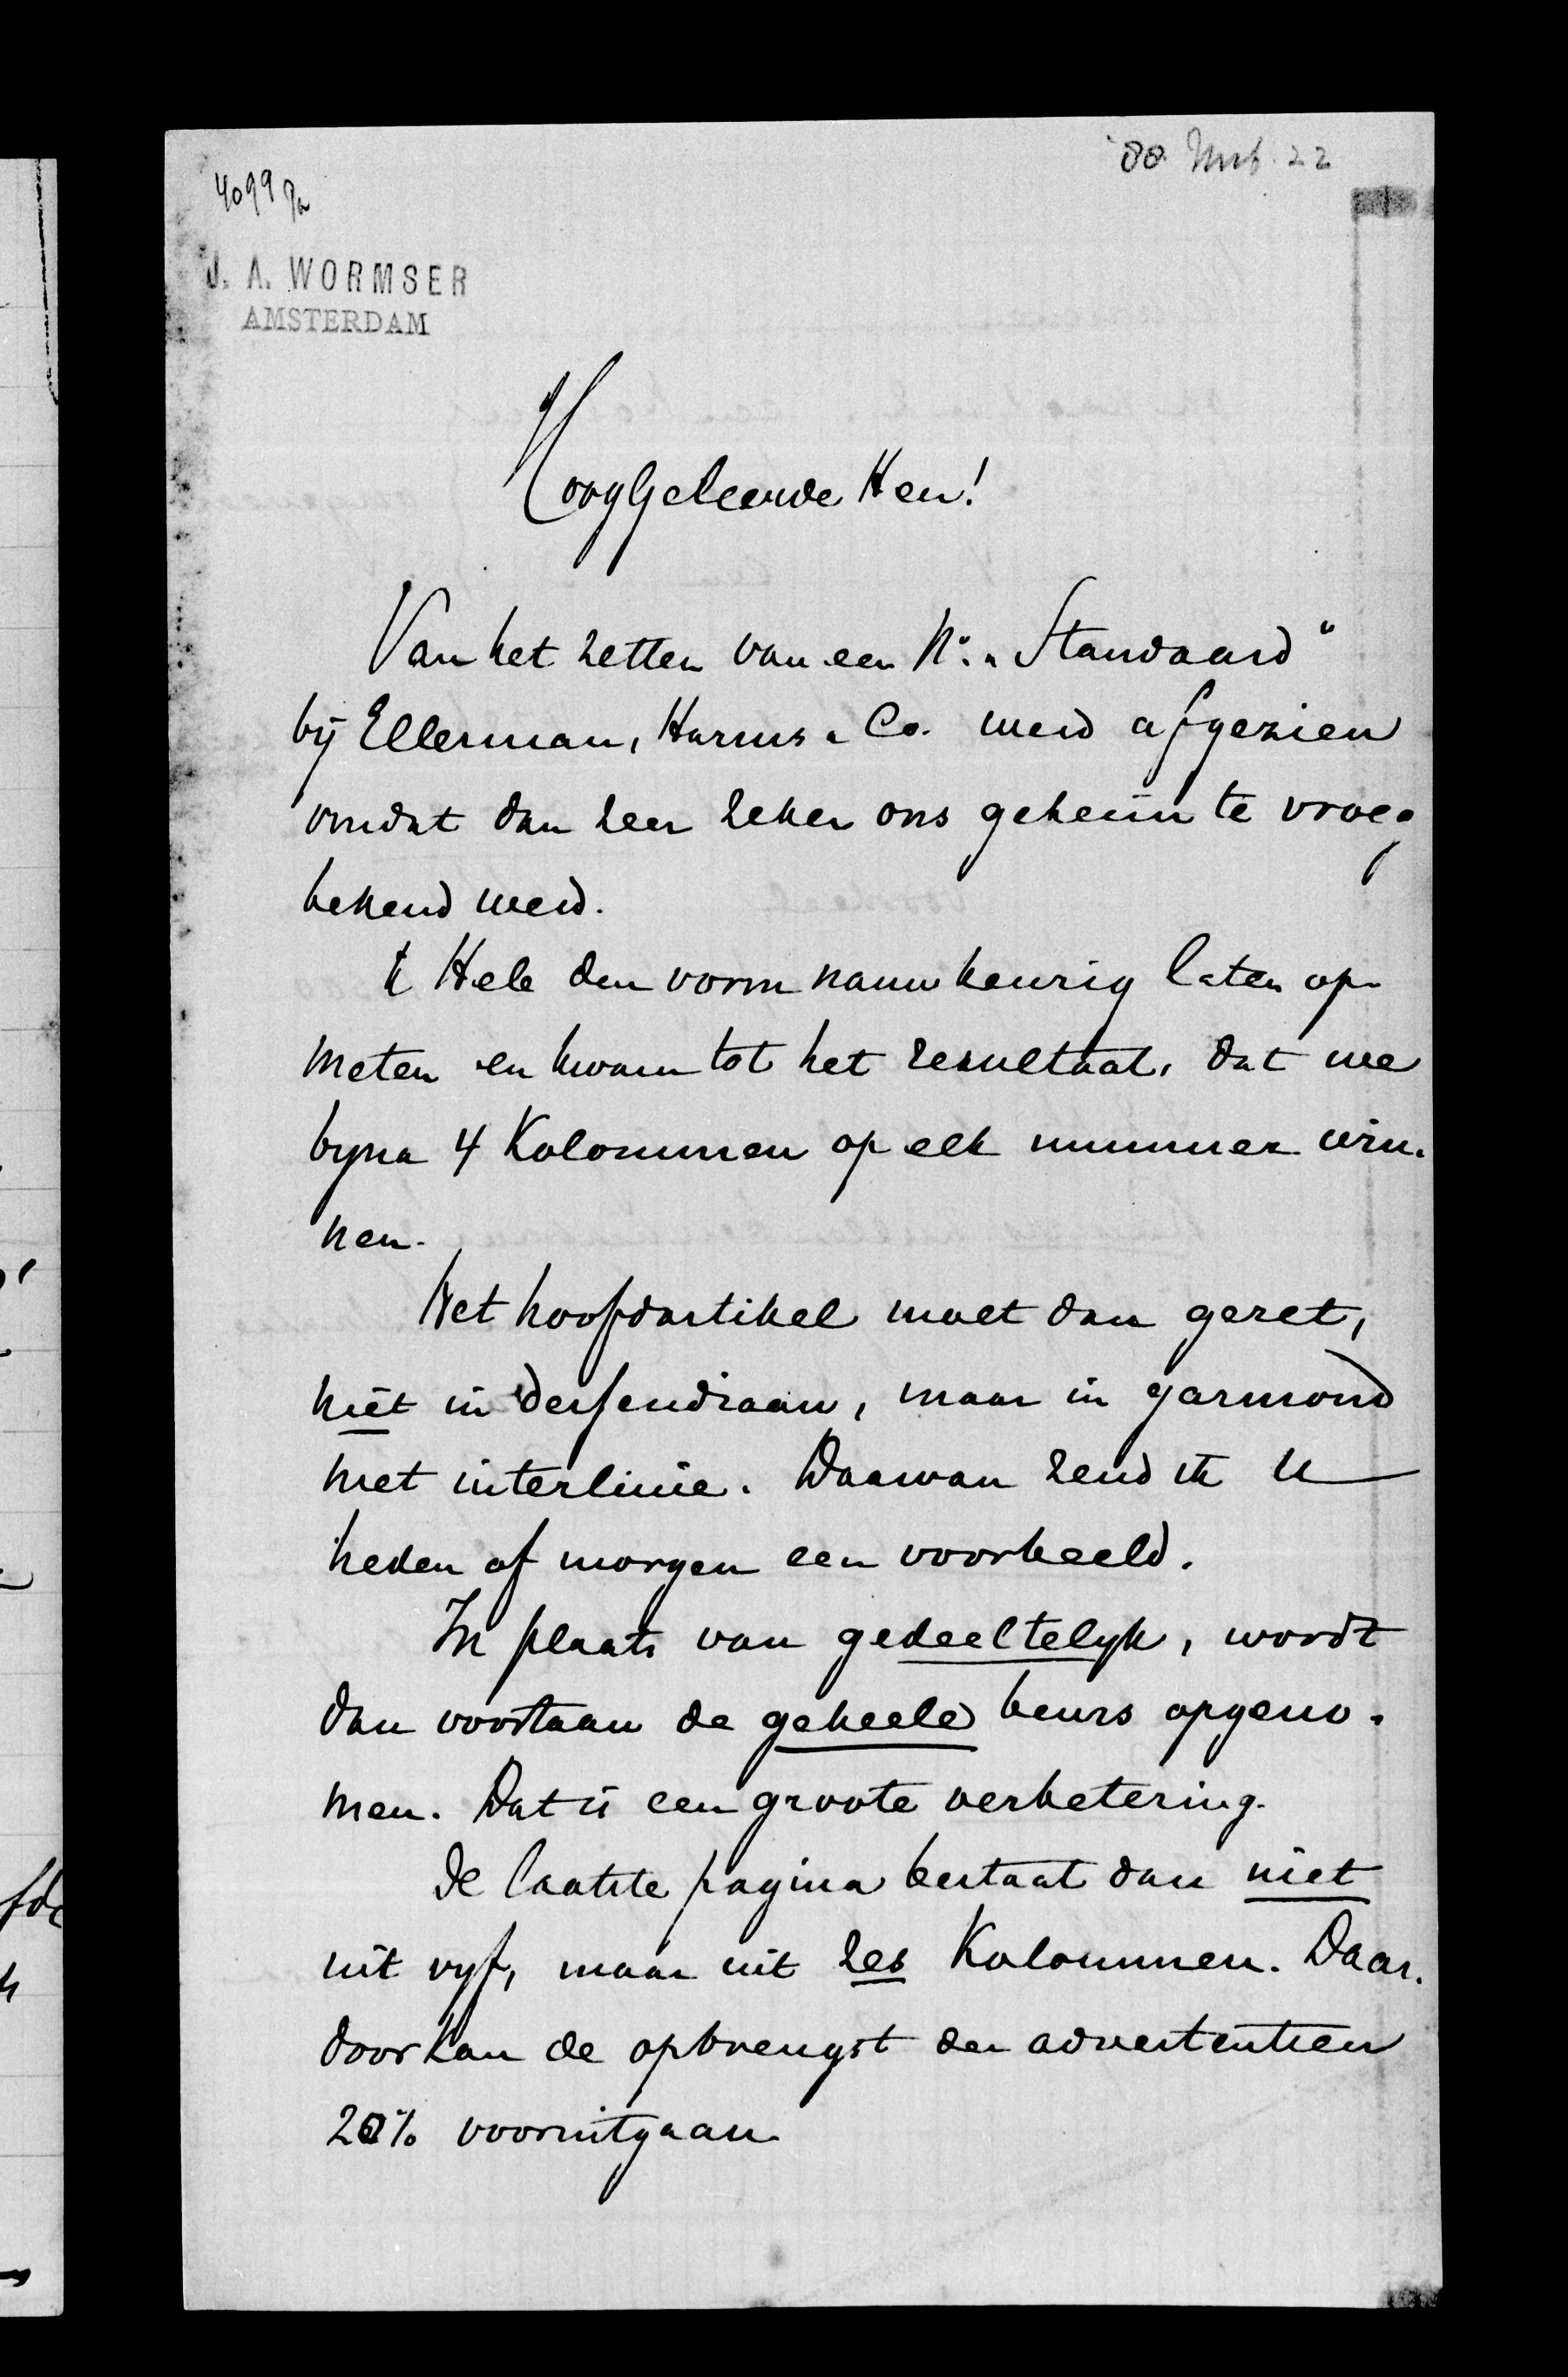 '88 Mrt. 22
4099a
J. A. WORMSER
AMSTERDAM
Hooggeleerde Heer!
Van het zetten van een No. „Standaard"
bij Ellerman, Harms & Co. werd afgezien
omdat dan zeer zeker ons geheim te vroeg
bekend werd.
Ik Heb den vorm nauwkeurig laten op-
meten en kwam tot het resultaat, dat we
byna 4 Kolommen op elk nummer win-
nen.
Het hoofdartikel moet dan gezet,
niet in descendiaan, maar in garmond
met interlinie. Daarvan zend ik U
heden of morgen een voorbeeld.
In plaats van gedeeltelyk, wordt
dan voortaan de geheele beurs opgeno-
men. Dat is een groote verbetering.
De laatste pagina bestaat dan niet
uit vyf, maar uit zes Kolommen. Daar-
door kan de opbrengst der advertentien
20% vooruitgaan